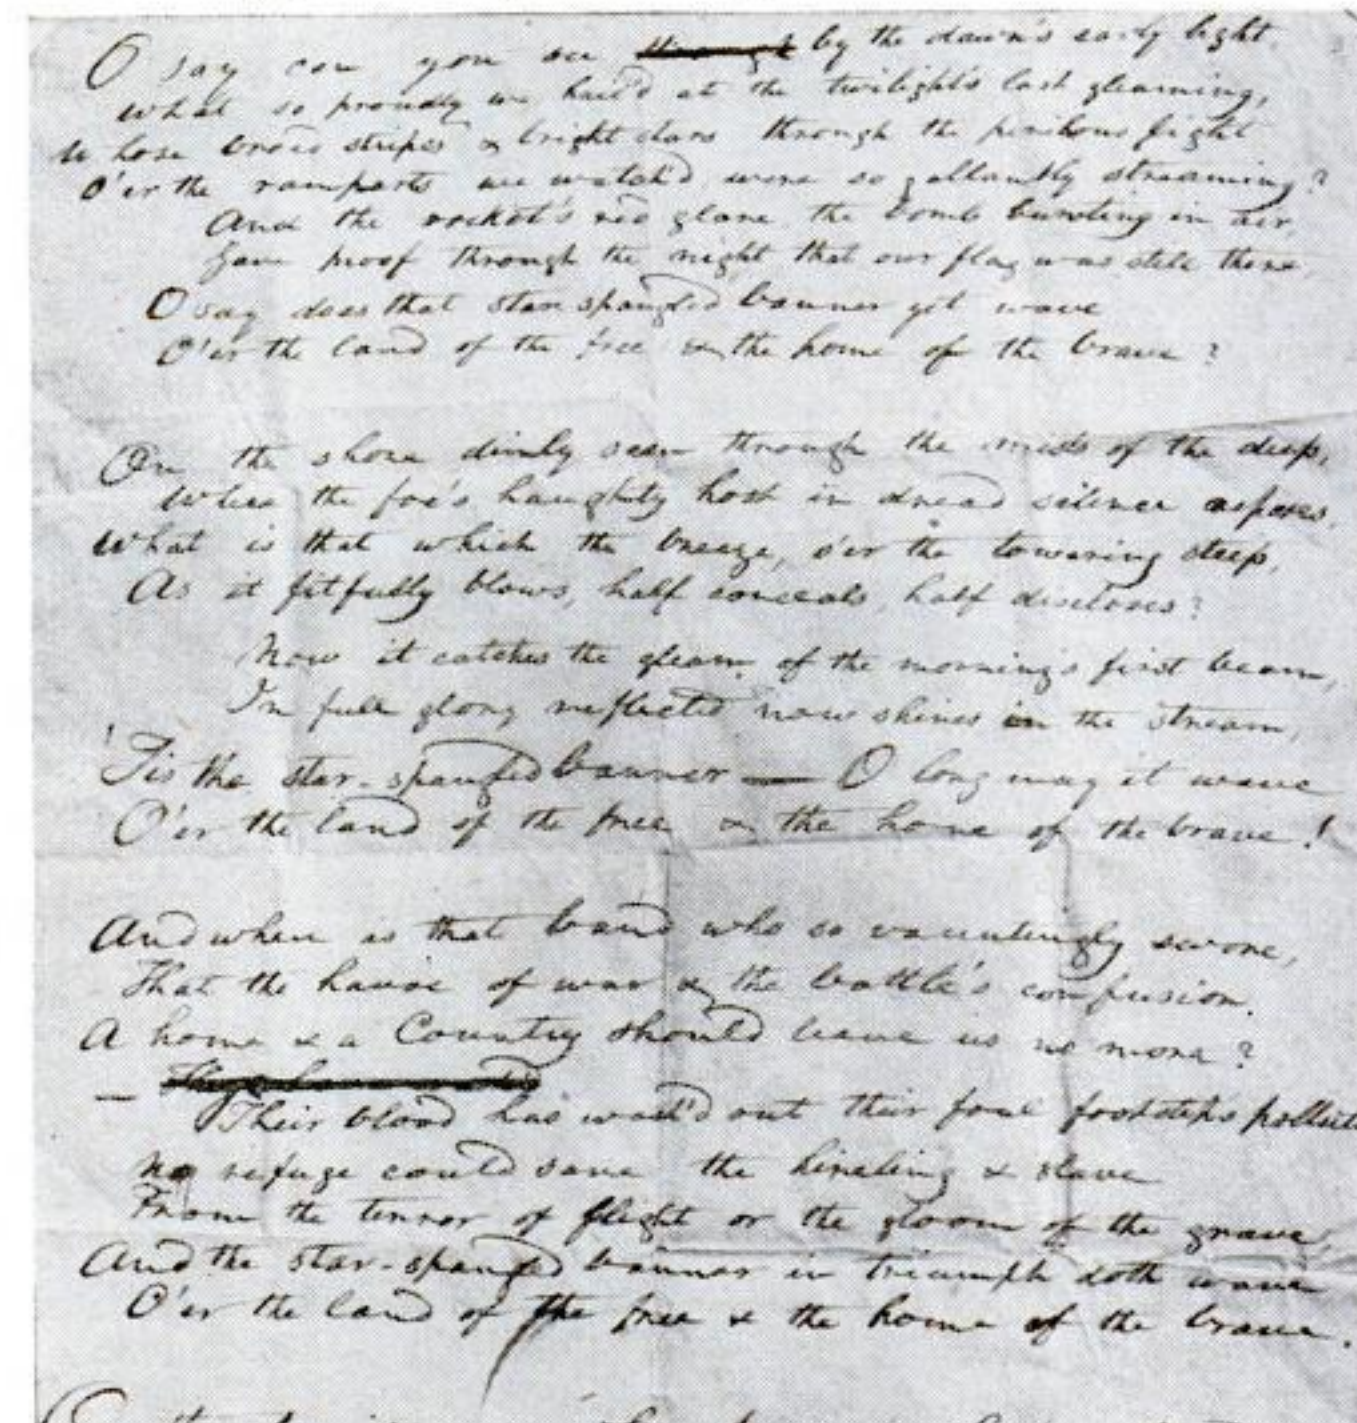 O say can you see ~~through~~ by the dawn's early light
What so proudly we hail'd at the twilight's last gleaming,
Whose broad stripes & bright stars through the perilous fight
O'er the ramparts we watch'd, were so gallantly streaming?
And the rocket's red glare, the bomb bursting in air,
Gave proof through the night that our flag was still there,
O say does that star spangled banner yet wave
O'er the land of the free & the home of the brave?
On the shore dimly seen through the mists of the deep,
Where the foe's haughty host in dread silence reposes,
What is that which the breeze, o'er the towering steep,
As it fitfully blows, half conceals, half discloses?
Now it catches the gleam of the morning's first beam,
In full glory reflected now shines in the stream,
'Tis the star-spangled banner — O long may it wave
O'er the land of the free & the home of the brave!
And where is that band who so vauntingly swore,
That the havoc of war & the battle's confusion
A home & a Country should leave us no more?
—
Their blood has wash'd out their foul footsteps pollut
No refuge could save the hireling & slave
From the terror of flight or the gloom of the grave,
And the star-spangled banner in triumph doth wave
O'er the land of the free & the home of the brave.